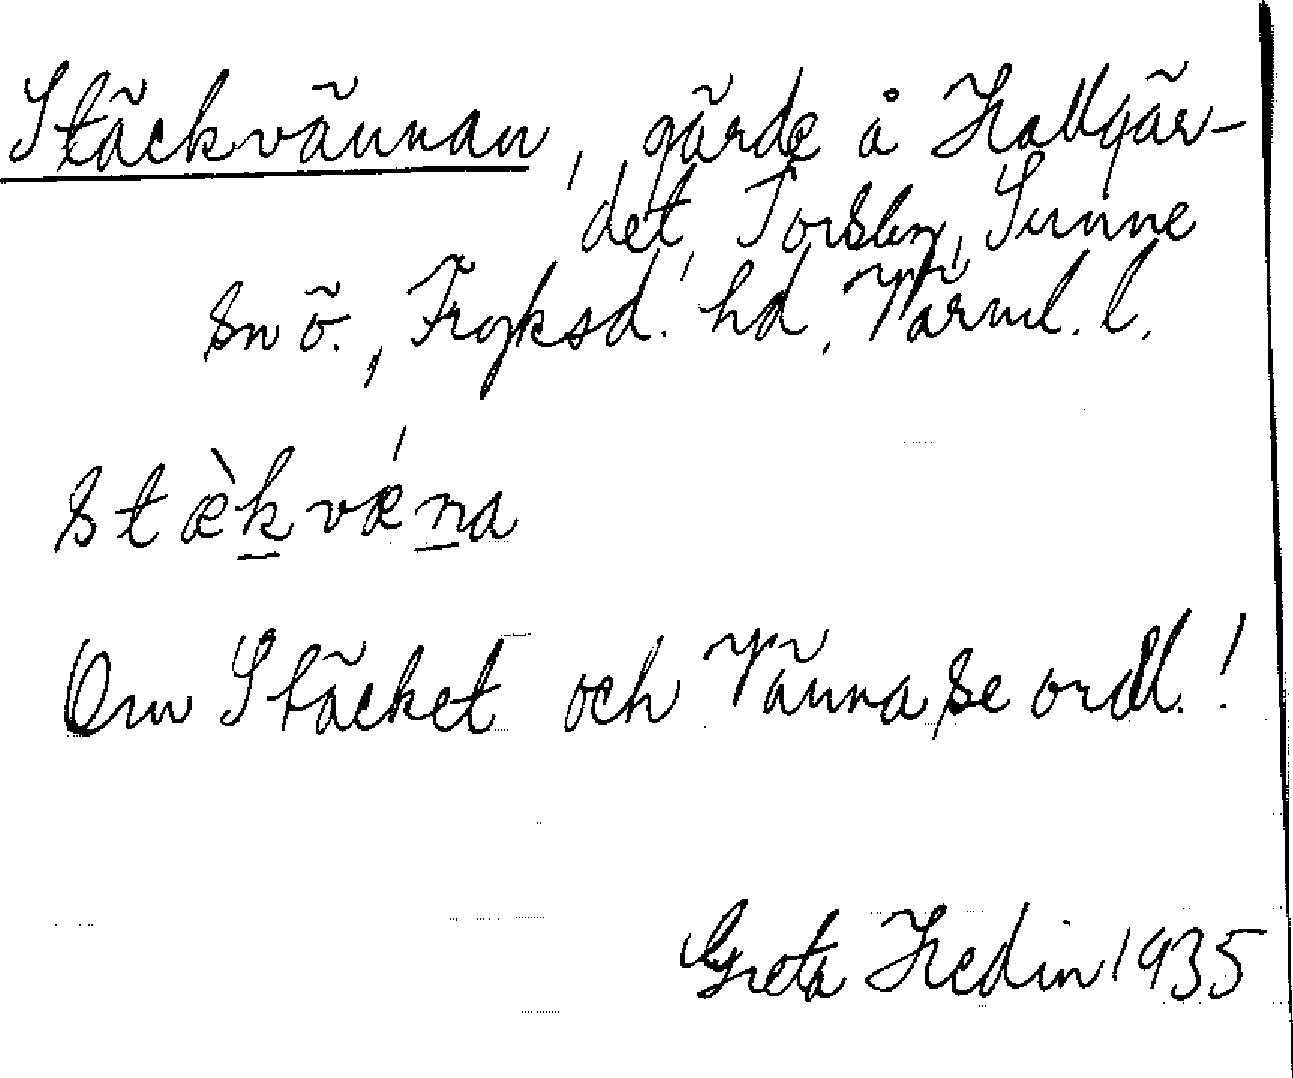 Stäckvännan, gärde å Hallgär-
det, Torsby, Sunne
sn ö., Fryksd. hd, Värml. l.
stæ̀k̲vǽn̲a
Om Stäcket och Vänna, se ordl.!
Greta Hedin 1935